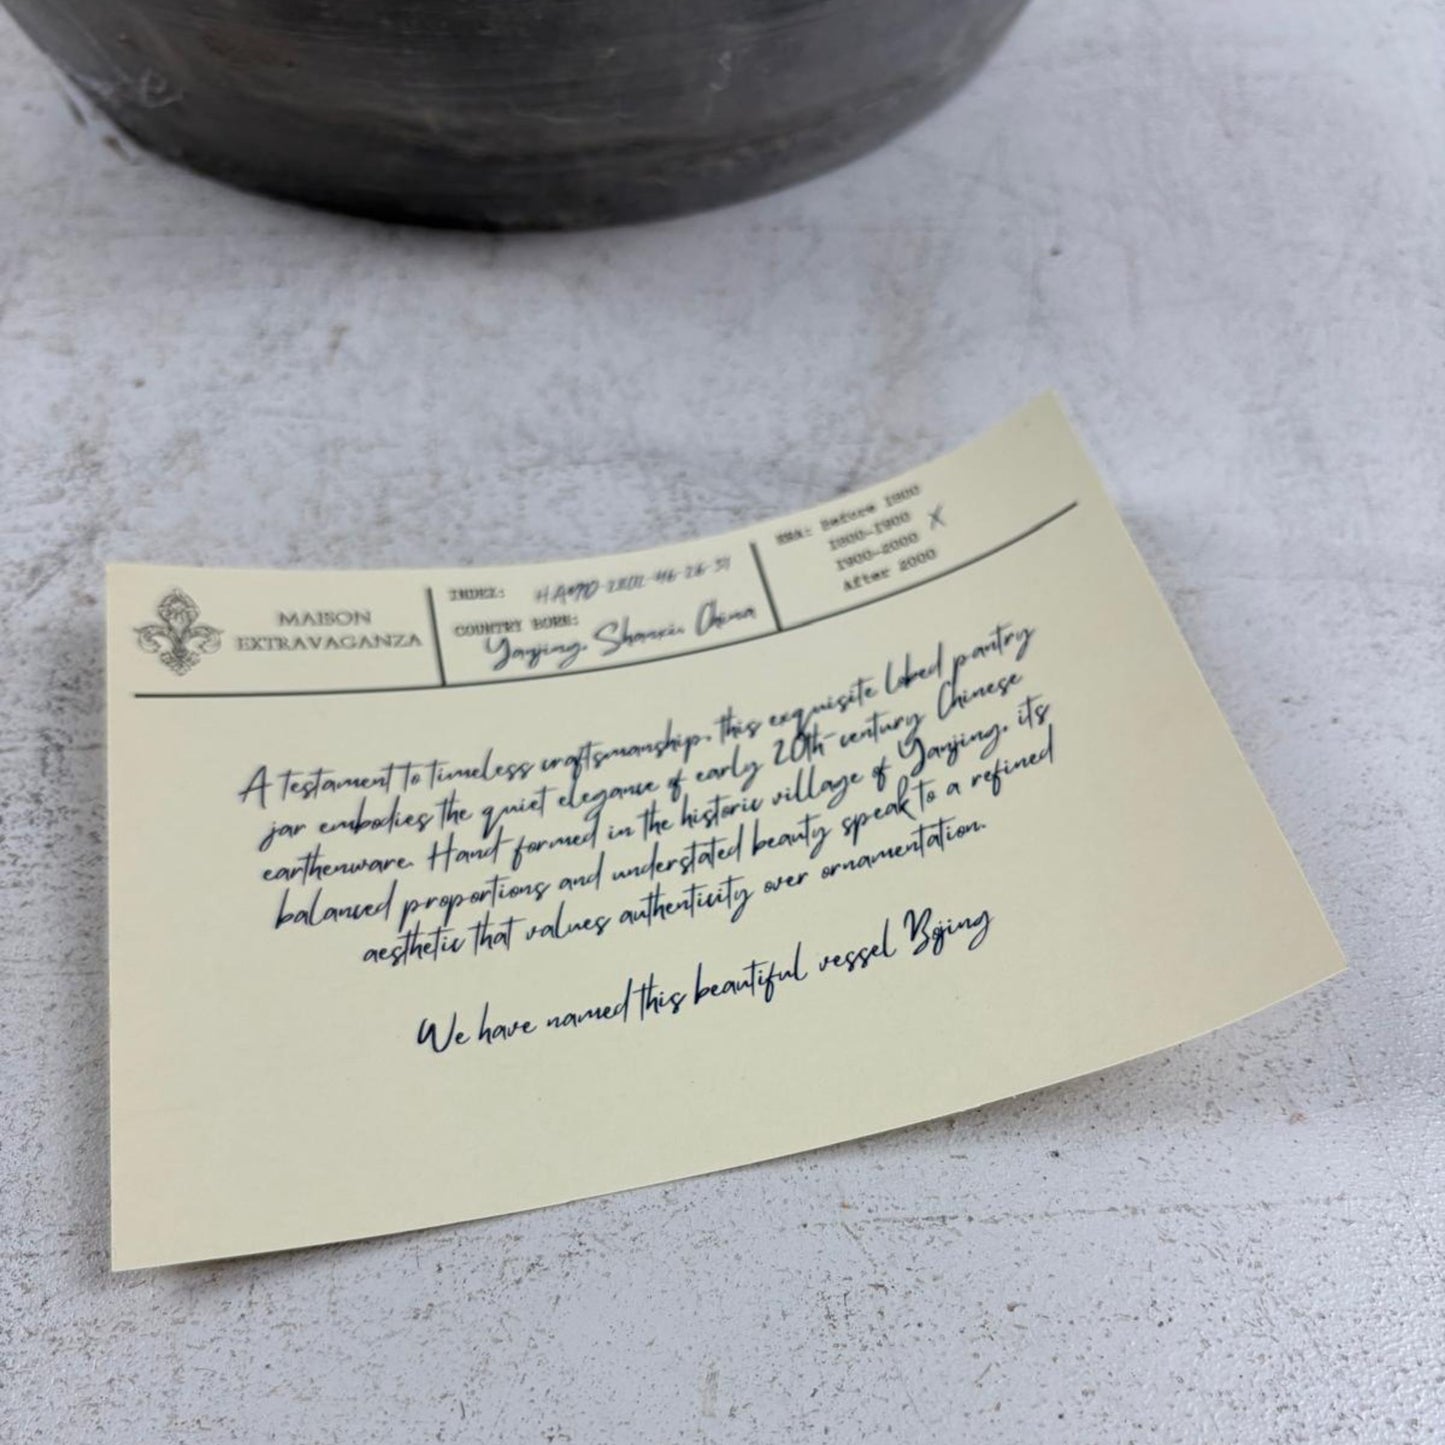 MAISON
EXTRAVAGANZA
INDEX:
COUNTRY BORN:
Yanjing, Shanxi, China
ERA: Before 1800
1800-1900 X
1900-2000
After 2000
A testament to timeless craftsmanship, this exquisite lobed pantry
jar embodies the quiet elegance of early 20th-century Chinese
earthenware. Hand formed in the historic village of Yanjing, its
balanced proportions and understated beauty speak to a refined
aesthetic that values authenticity over ornamentation.
We have named this beautiful vessel Bojing